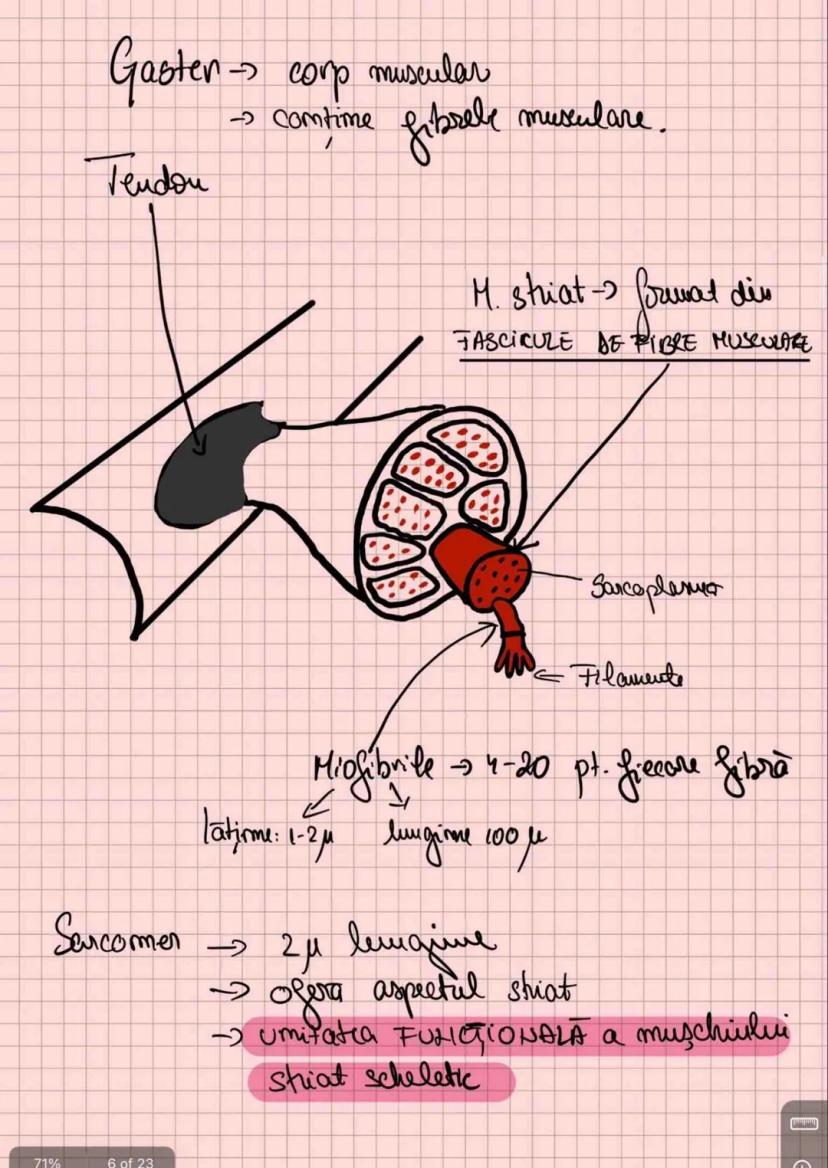 Gaster → corp muscular
→ conține fibrele musculare.
Tendon
M. striat → format din
FASCICULE DE FIBRE MUSCULARE
Sarcoplasma
← Filamente
Miofibrile → 4-20 pt. fiecare fibră
lățime: 1-2 μ lungime 100 μ
Sarcomer → 2 μ lungime
→ oferă aspectul striat
→ unitatea FUNCȚIONALĂ a mușchiului
striat scheletic
71% 6 of 23